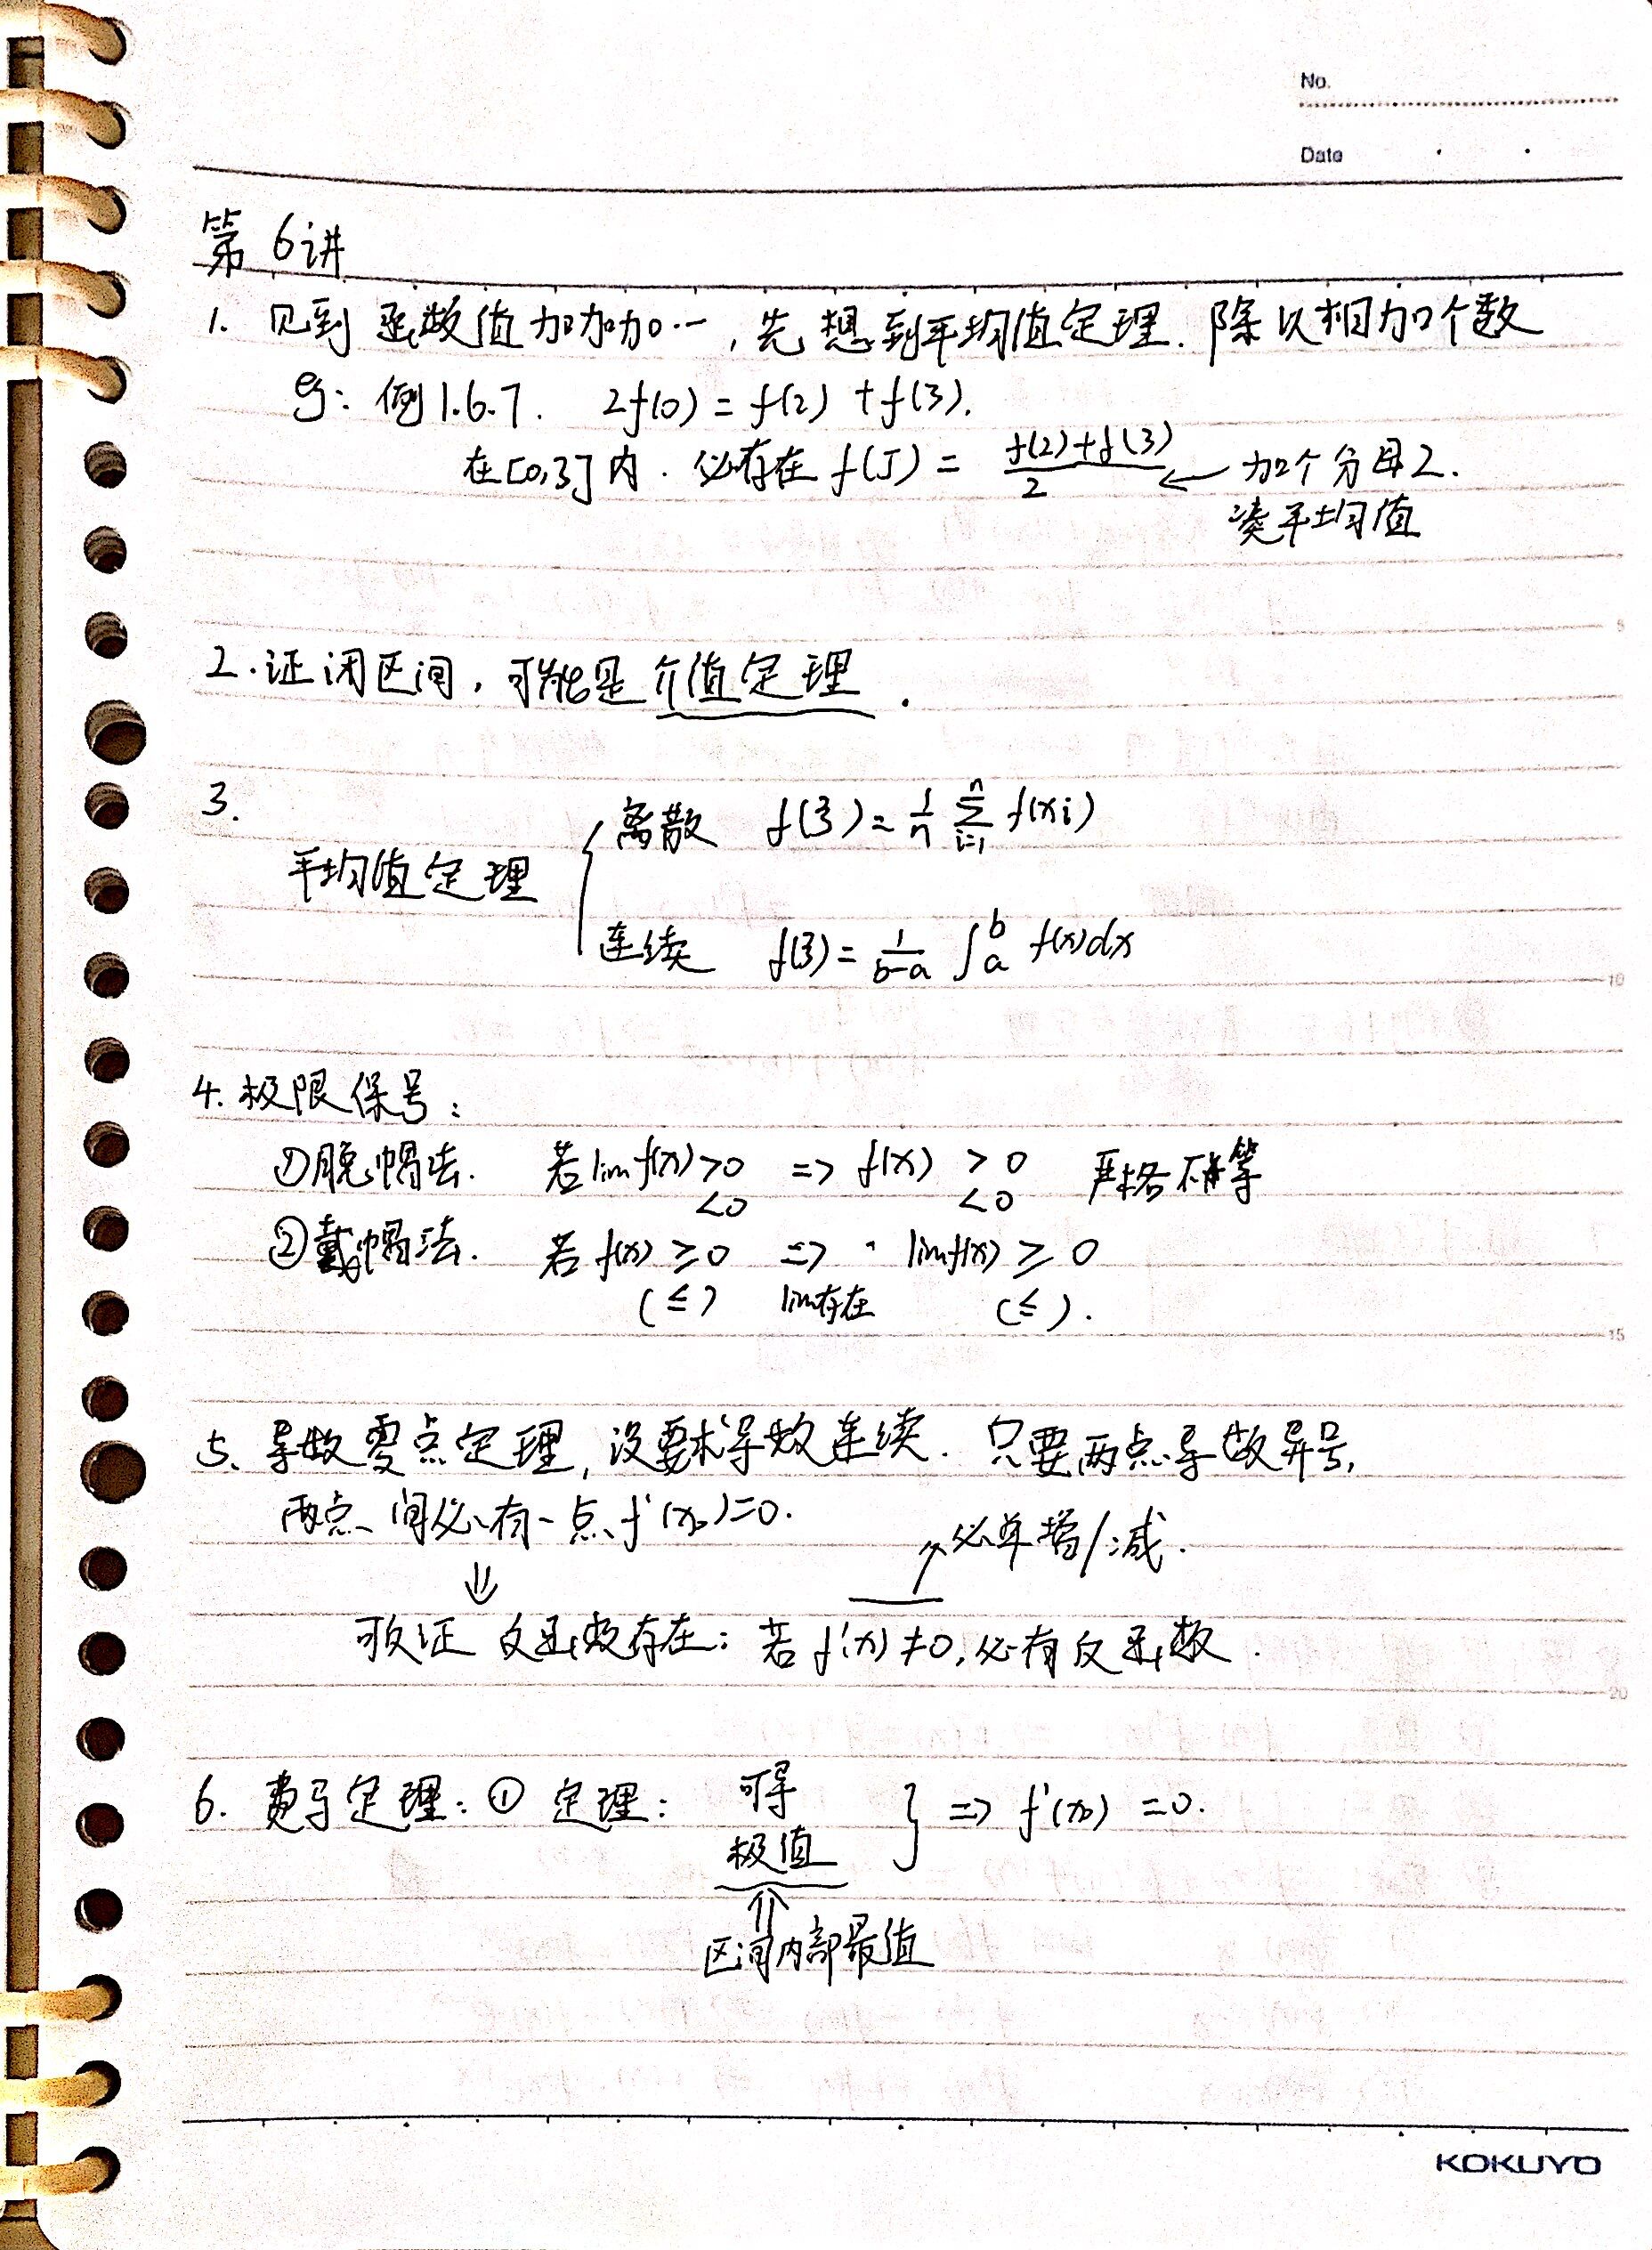 No.
Date
第6讲
1. 见到函数值加加加…，先想到平均值定理. 除以相加个数
eg: 例1.6.7. 2f(0) = f(2) + f(3).
在[0,3]内. 必存在 f(ξ) = (f(2)+f(3))/2 ← 加2个分母2.
凑平均值
2. 证闭区间，可能是介值定理.
3.
离散 f(ξ) = 1/n ∑_{i=1}^{n} f(xi)
平均值定理
连续 f(ξ) = 1/(b-a) ∫_a^b f(x)dx
4. 极限保号:
①脱帽法. 若lim f(x) >0 => f(x) >0 严格不等
<0 <0
②戴帽法. 若 f(x) ≥0 => lim f(x) ≥ 0
(≤) lim存在 (≤).
5. 导数零点定理, 没要求导数连续. 只要两点导数异号,
两点间必有一点 f'(x₀)=0.
⇓ ↗必单增/减.
可证反函数存在: 若 f'(x) ≠0, 必有反函数.
6. 费马定理: ① 定理: 可导
极值 } => f'(x₀) =0.
⇑
区间内部最值
5
10
15
20
KOKUYO